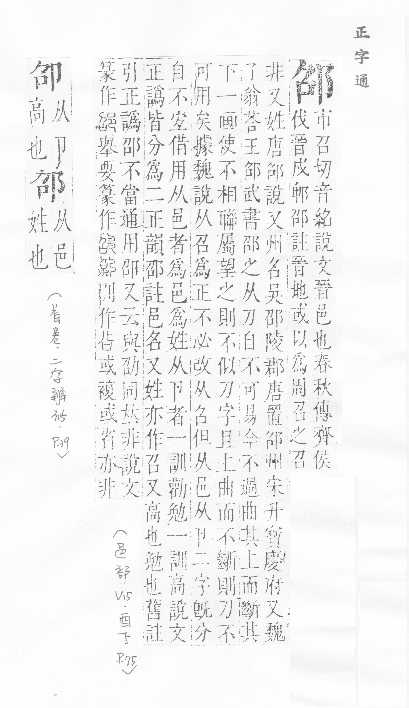 正字通
邵
市召切音紹說文晉邑也春秋傳齊侯
伐晉戍郫邵註晉地或以為周召之召
非又姓唐邵說又州名吳邵陵郡唐置邵州宋升寶慶府又魏
了翁荅王邵武書邵之从刀自不可易今不過曲其上而斷其
下一畫使不相聯屬望之則不似刀字且上曲而不斷則刀不
可用矣據魏說从召為正不必改从名但从邑从卩二字旣分
自不宐借用从邑者為邑為姓从卩者一訓勸勉一訓高說文
正譌皆分為二正韻邵註邑名又姓亦作召又高也勉也舊註
引正譌邵不當通用卲又云與劭同竝非說文
篆作舉要篆作訓作或複或省亦非
(邑部 V15·酉下 P.75)
卲
从卩
高也
邵
从邑
姓也
(首卷·二字辨似·P.39)